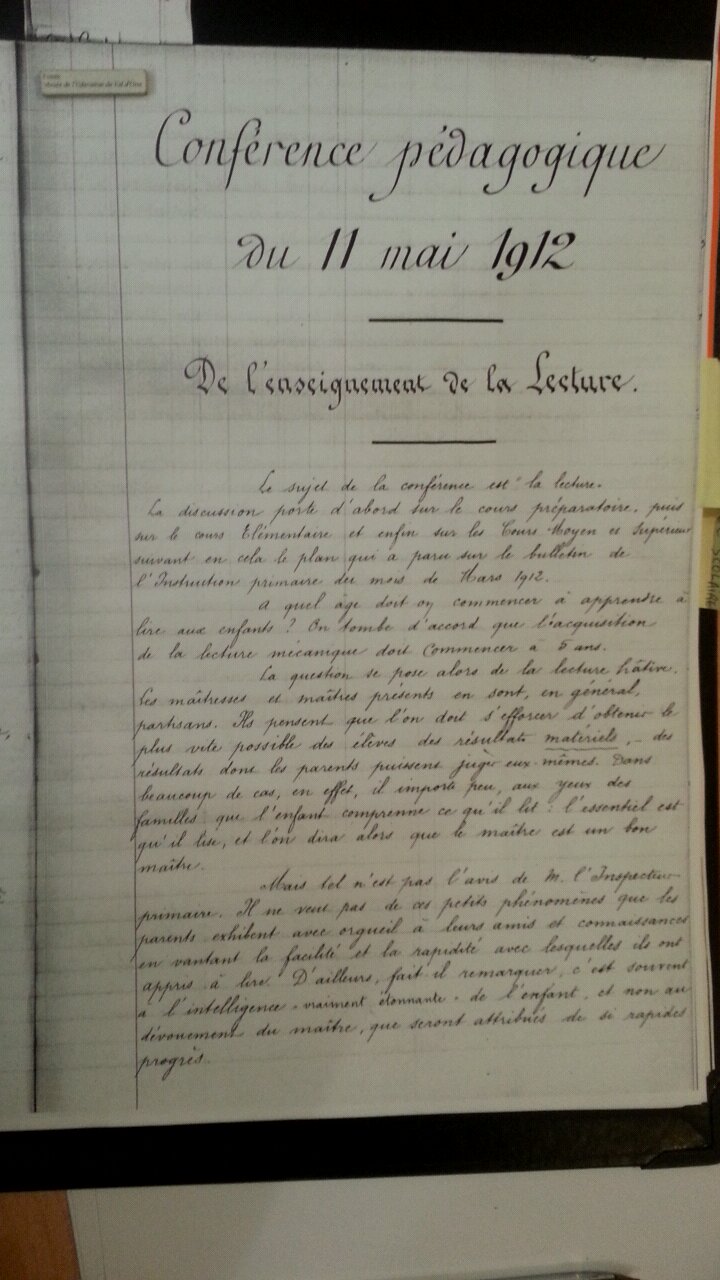 Musée de l'Education du Val d'Oise
Conférence pédagogique
du 11 mai 1912
De l'enseignement de la Lecture.
Le sujet de la conférence est la lecture.
La discussion porte d'abord sur le cours préparatoire, puis
sur le cours Elémentaire et enfin sur les Cours Moyen et Supérieur
suivant en cela le plan qui a paru sur le bulletin de
l'Instruction primaire du mois de Mars 1912.
A quel âge doit on commencer à apprendre à
lire aux enfants ? On tombe d'accord que l'acquisition
de la lecture mécanique doit commencer à 5 ans.
La question se pose alors de la lecture hâtive.
Les maîtresses et maîtres présents en sont, en général,
partisans. Ils pensent que l'on doit s'efforcer d'obtenir le
plus vite possible des élèves des résultats matériels, - des
résultats dont les parents puissent juger eux-mêmes. Dans
beaucoup de cas, en effet, il importe peu, aux yeux des
familles que l'enfant comprenne ce qu'il lit : l'essentiel est
qu'il lise, et l'on dira alors que le maître est un bon
maître.
Mais tel n'est pas l'avis de M. l'Inspecteur
primaire. Il ne veut pas de ces petits phénomènes que les
parents exhibent avec orgueil à leurs amis et connaissances
en vantant la facilité et la rapidité avec lesquelles ils ont
appris à lire. D'ailleurs, fait il remarquer, c'est souvent
à l'intelligence "vraiment étonnante" de l'enfant, et non au
dévouement du maître, que seront attribués de si rapides
progrès.